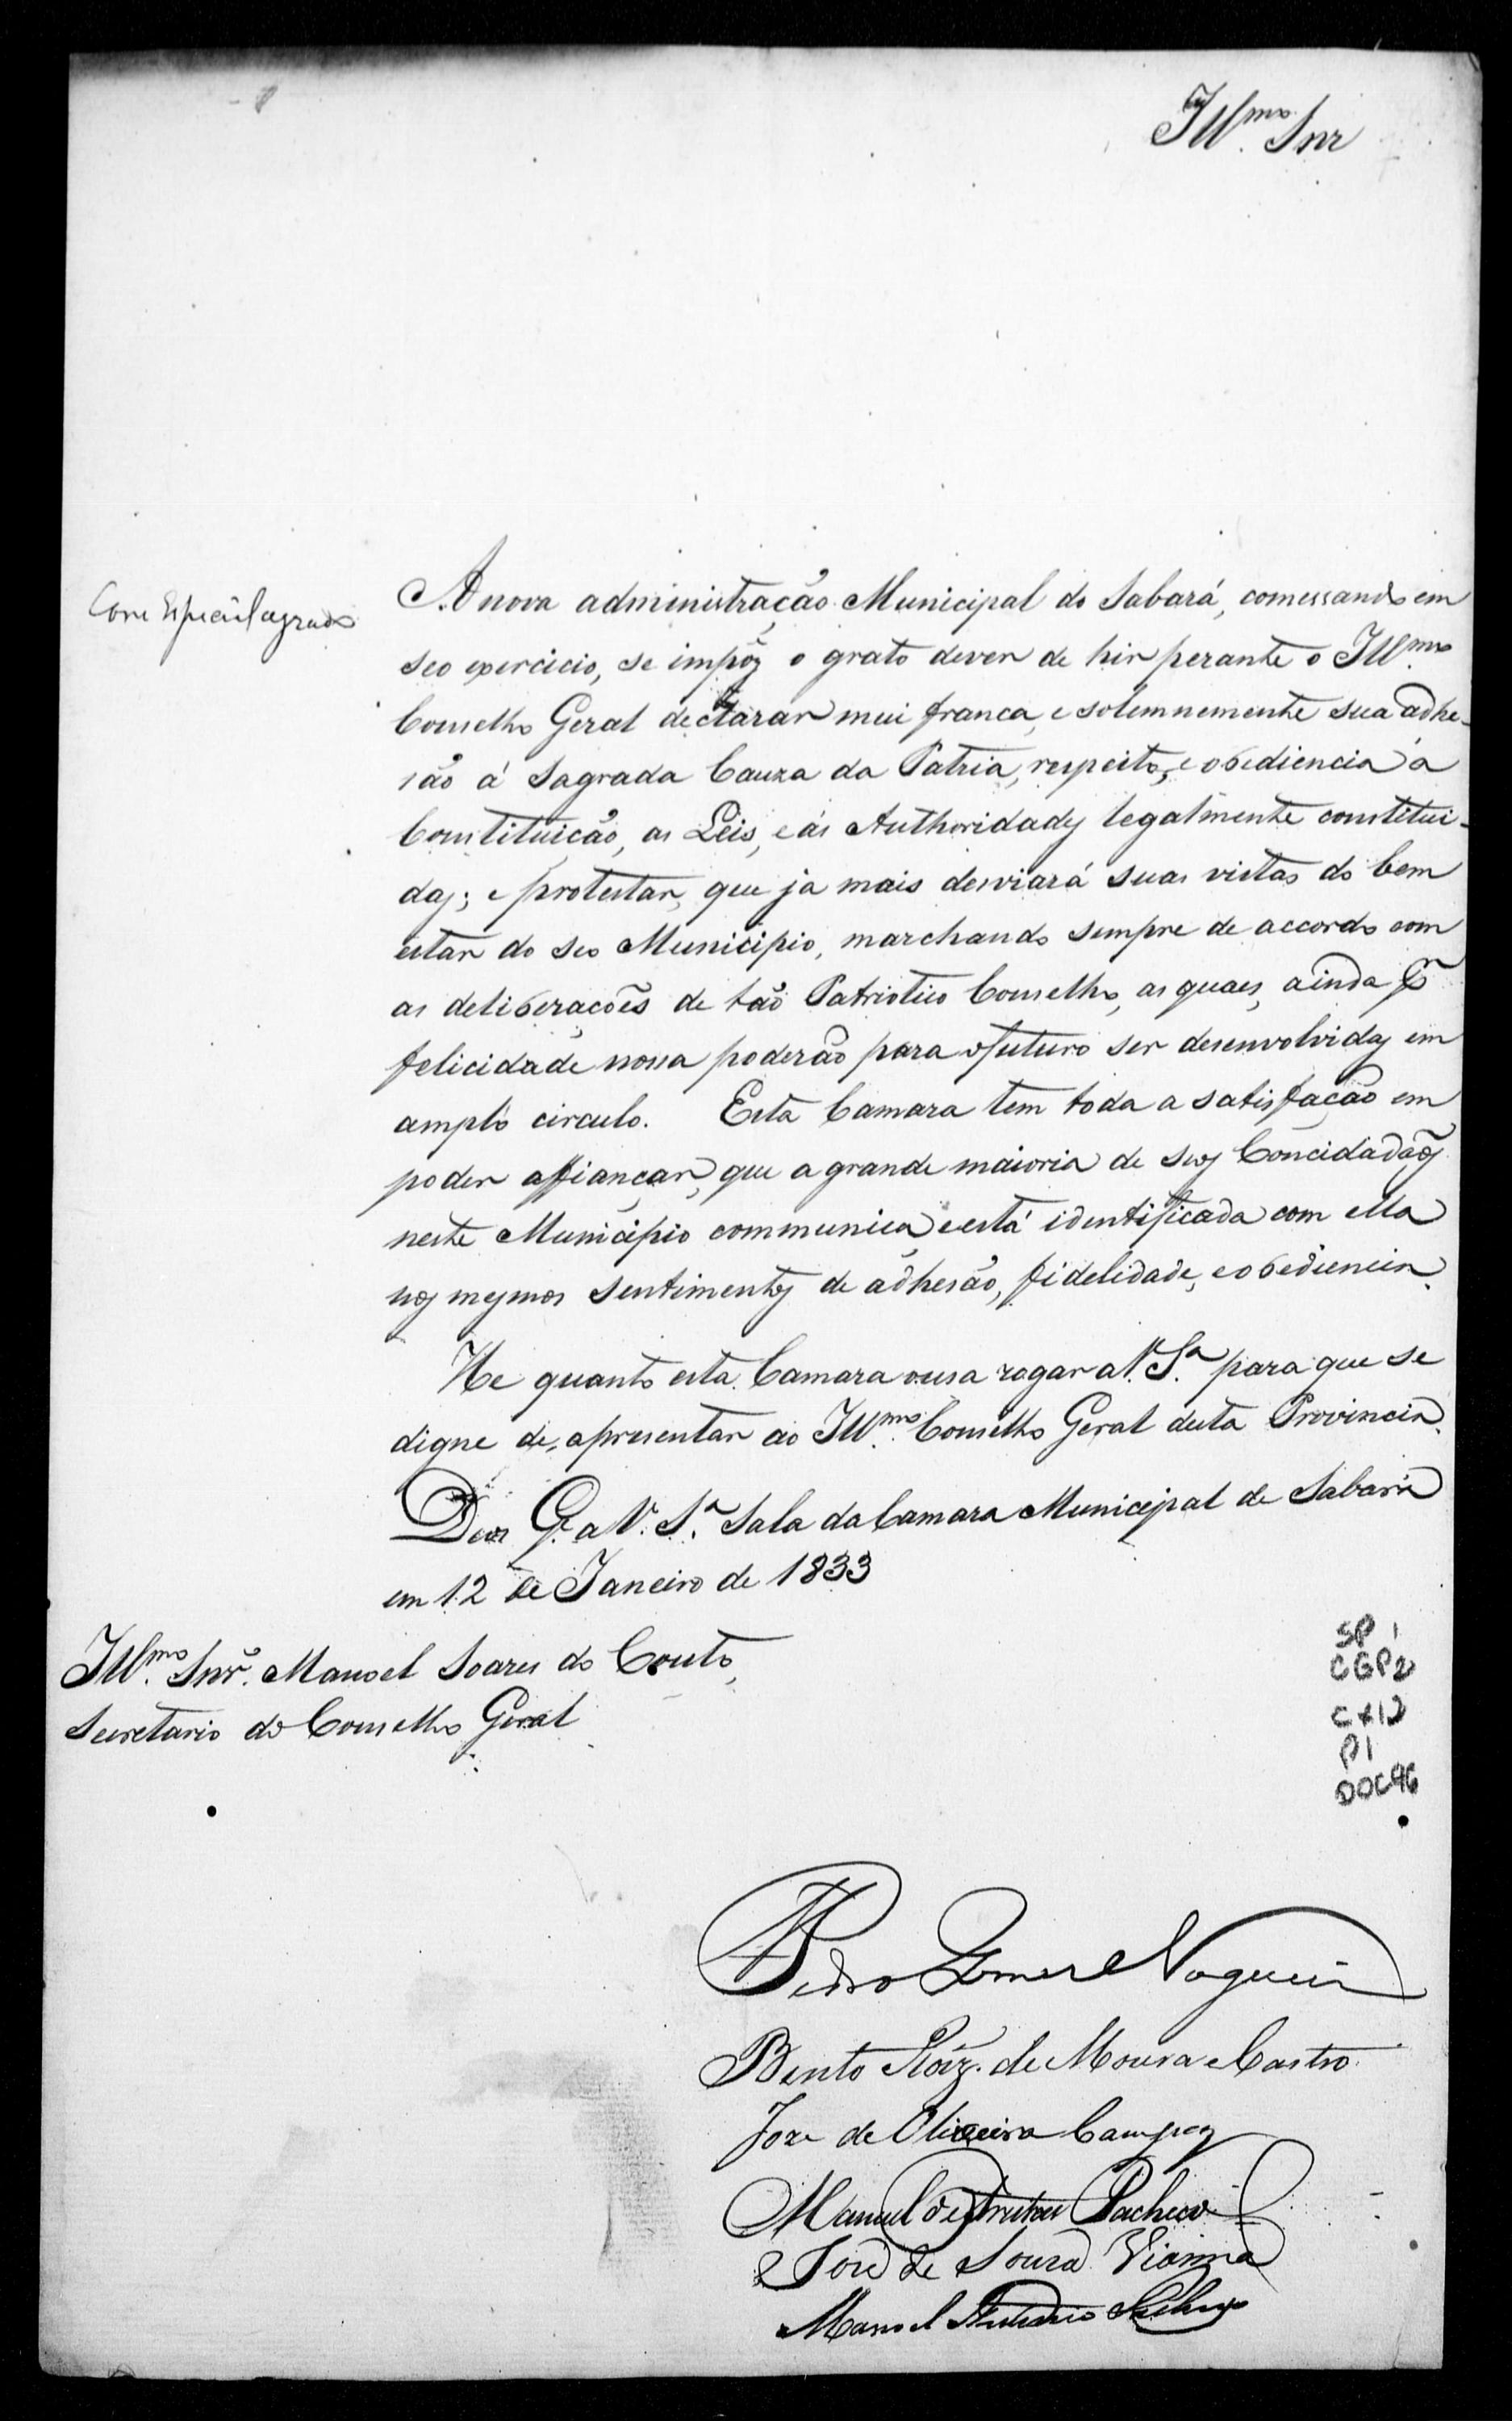 Illmo. Snr
Com Especial agrado
A nova administração Municipal do Sabará, comessando em
seo exercicio, se impôz o grato dever de hir perante o Illmo.
Conselho Geral declarar mui franca, e solemnemente sua adhe-
são á Sagrada Cauza da Patria, respeito, e obediencia á
Constituição, as Leis, e ás Authoridades legalmente constitui-
das; e protestar, que ja mais desviará suas vistas do bem
estar do seo Municipio, marchando sempre de accordo com
as deliberações de tão Patriotico Conselho, as quaes, ainda pr.
felicidade nossa poderão para o futuro ser desenvolvidas em
amplo circulo. Esta Camara tem toda a satisfação em
poder affiançar, que a grande maioria de seos Concidadãos
neste Municipio communica e está identificada com ella
nos mesmos sentimentos de adhesão, fidelidade, e obediencia.
He quanto esta Camara ousa rogar a V. Sa. para que se
digne de apresentar ao Illmo. Conselho Geral desta Provincia.
Deos Ge. a V. Sa. Sala da Camara Municipal de Sabará
em 12 de Janeiro de 1833
Illmo. Snr. Manoel Soares do Couto,
Secretario do Conselho Geral
SP 1
CGP2
CX12
P1
DOC46
Pedro Gomes Nogueira
Bento Roiz. de Moura e Castro
Joze de Oliveira Campos
Manuel de Freitas Pacheco
José de Souza Vianna
Manoel Antonio